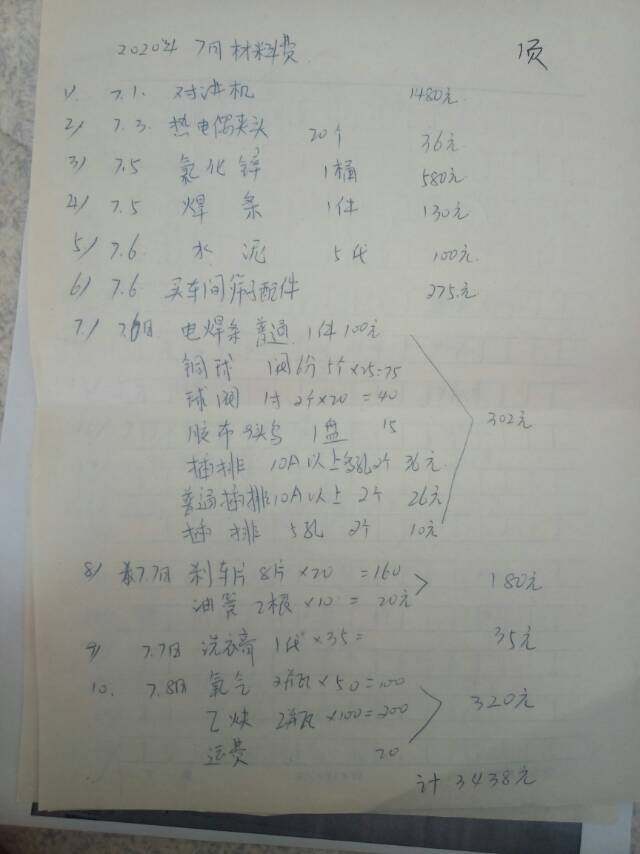 2020年 7月材料费 1页
1) 7.1. 对讲机 1480元
2) 7.3. 热电偶夹头 20个 36元
3) 7.5 氯化锌 1桶 580元
4) 7.5 焊条 1件 130元
5) 7.6 水泥 5代 100元
6) 7.6 买车间 配件 275元
7) 7.6日 电焊条 普通 1件100元
铜球 ×25=75
球阀 2个×20=40
胶布 1盘 15
插排 10A以上 2个 36元 302元
普通插排10A以上 2个 26元
插排 5孔 2个 10元
8) 7.7日 刹车片 8片×20 =160
油管 2根×10 = 20元 180元
9) 7.7日 洗衣膏 1代×35= 35元
10. 7.8日 氧气 2瓶×50=100
乙炔 2瓶×100=200 320元
运费 20
计 3438元